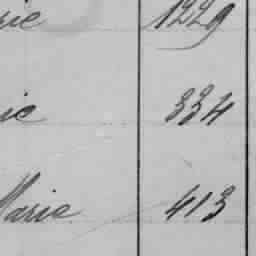 rie 1229
rie 334
Marie 413